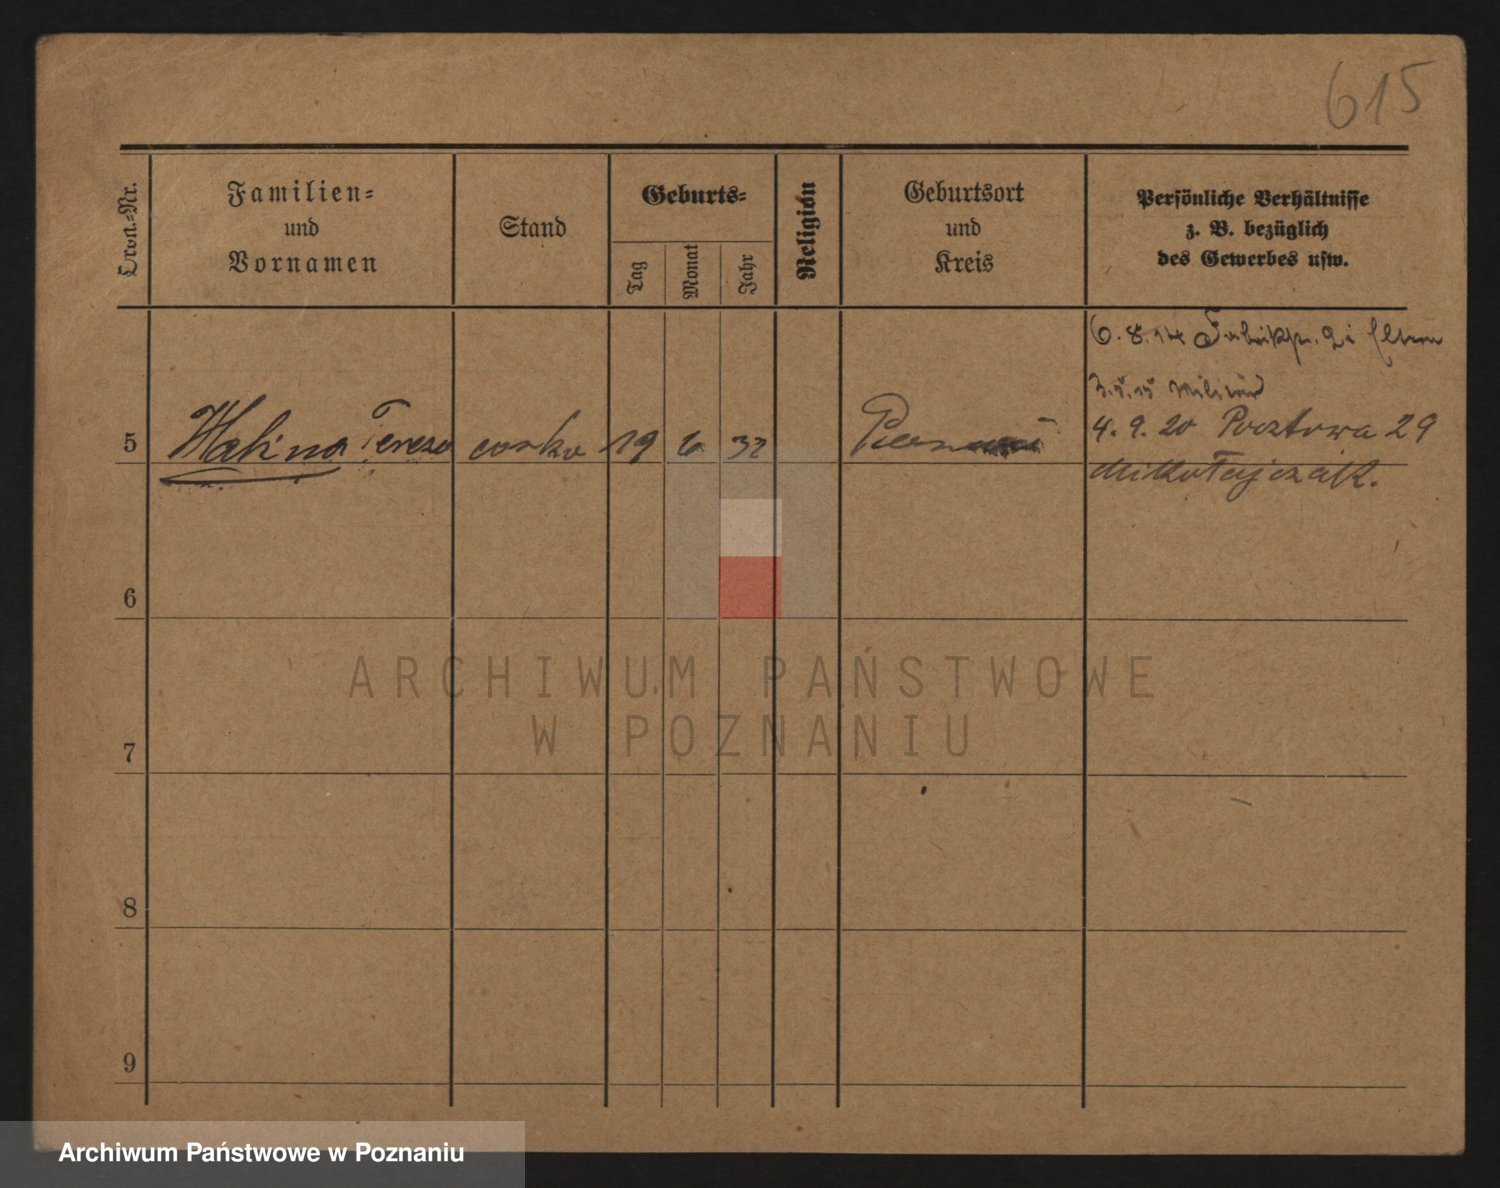 615
Ordn.-Nr.
Familien-
und
Vornamen
Stand
Geburts-
Tag
Monat
Jahr
Religion
Geburtsort
und
Kreis
Persönliche Verhältnisse
z. B. bezüglich
des Gewerbes usw.
6.8.14 Eltern
3.5.15 Militär
4.9.20 Pocztowa 29
Mikołajczak.
5 Halina Teresa corka 19 6 32
6
7
8
9
ARCHIWUM PAŃSTWOWE
W POZNANIU
Archiwum Państwowe w Poznaniu